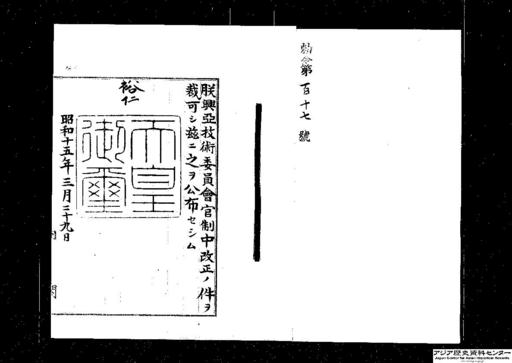 勅令第百十七號
朕興亞技術委員會官制中改正ノ件ヲ
裁可シ茲ニ之ヲ公布セシム
裕仁
天皇御璽
昭和十五年三月二十九日
アジア歴史資料センター
Japan Center for Asian Historical Records